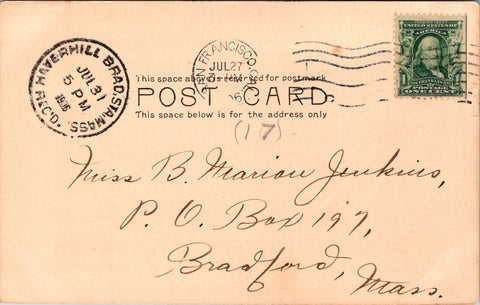 HAVERHILL BRAD. STA. MASS.
JUL 31
5 PM
REC'D.
SAN FRANCISCO
JUL 27
UNITED STATES OF AMERICA
1
POSTAGE
ONE CENT
This space above is reserved for postmark
POST CARD.
This space below is for the address only
(17)
Miss B. Marion Jenkins,
P. O. Box 197,
Bradford,
Mass.